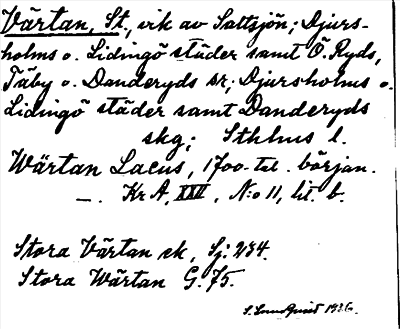 Värtan, St., vik av Saltsjön; Djurs-
holms o. Lidingö städer samt Ö. Ryds,
Täby o. Danderyds sr; Djursholms o.
Lidingö städer samt Danderyds
skg; Sthlms l.
Wärtan Lacus, 1700-tal. början.
—. Kr A, XXV, N:o 11, lit. b.
Stora Värtan sk, Sj. 234.
Stora Wärtan G. 75.
1936.